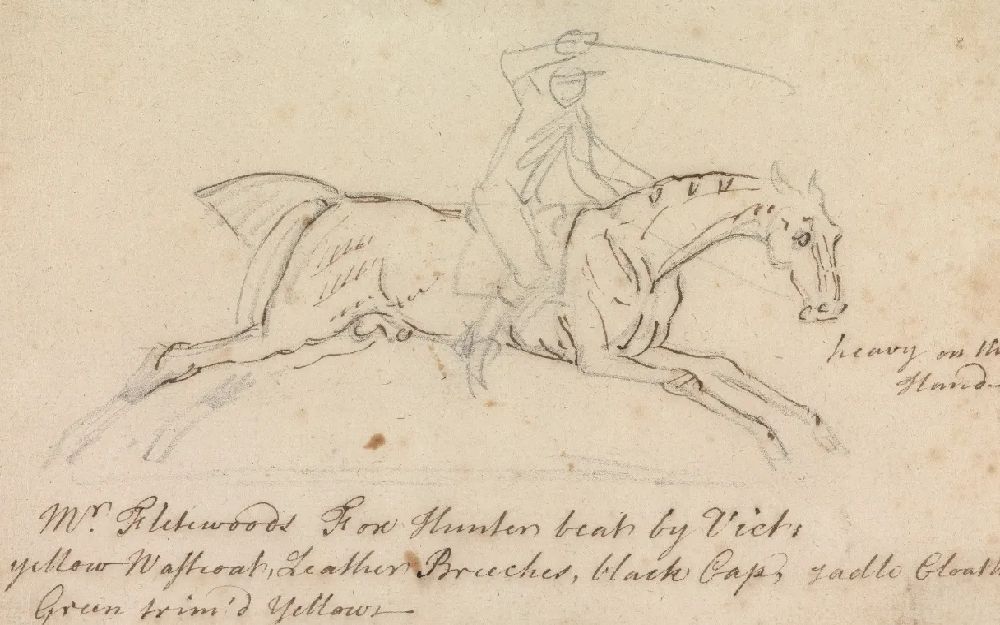 heavy on the
Hand
Mr. Fletewoods Fox Hunter beat by Vict:
yellow Wastcoat, Leather Breeches, black Cap, sadle Cloath
Green trim'd Yellow